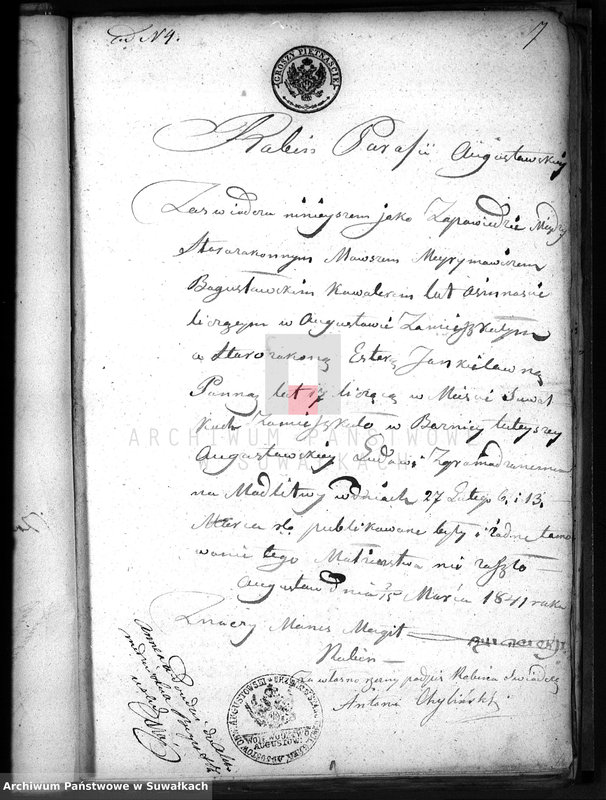 ad N 4.
7
GROSZY PIETNAŚCIE
Rabin Parafii Augustowskiey
Zaświadcza ninieyszem jako Zapowiedzie Między
Starozakonnym Mowszem Meyrymowiczem
Bogusławskim Kawalerem lat ośmnaście
liczącym w Augustowie Zamieszkałym
a Starozakonną Esterą Jankielowną
Panną lat 17 liczącą w Mieście Suwał
kach Zamieszkałą w Bożnicy tuteyszey
Augustowskiey Ludowi Zgromadzonemu
na Modlitwy w dniach 27 Lutego 6, i 13,
Marca r.b. publikowane były i żadne tamo
wanie tego Małżeństwa nie zaszło
Augustow dnia 15 Marca 1841 roku
Znaczy Manes Margit
Rabin
na własno ręczny podpis Rabina świadczę
Antoni Chyliński
ARCHIWUM PAŃSTWOWE
W SUWAŁKACH
Archiwum Państwowe w Suwałkach